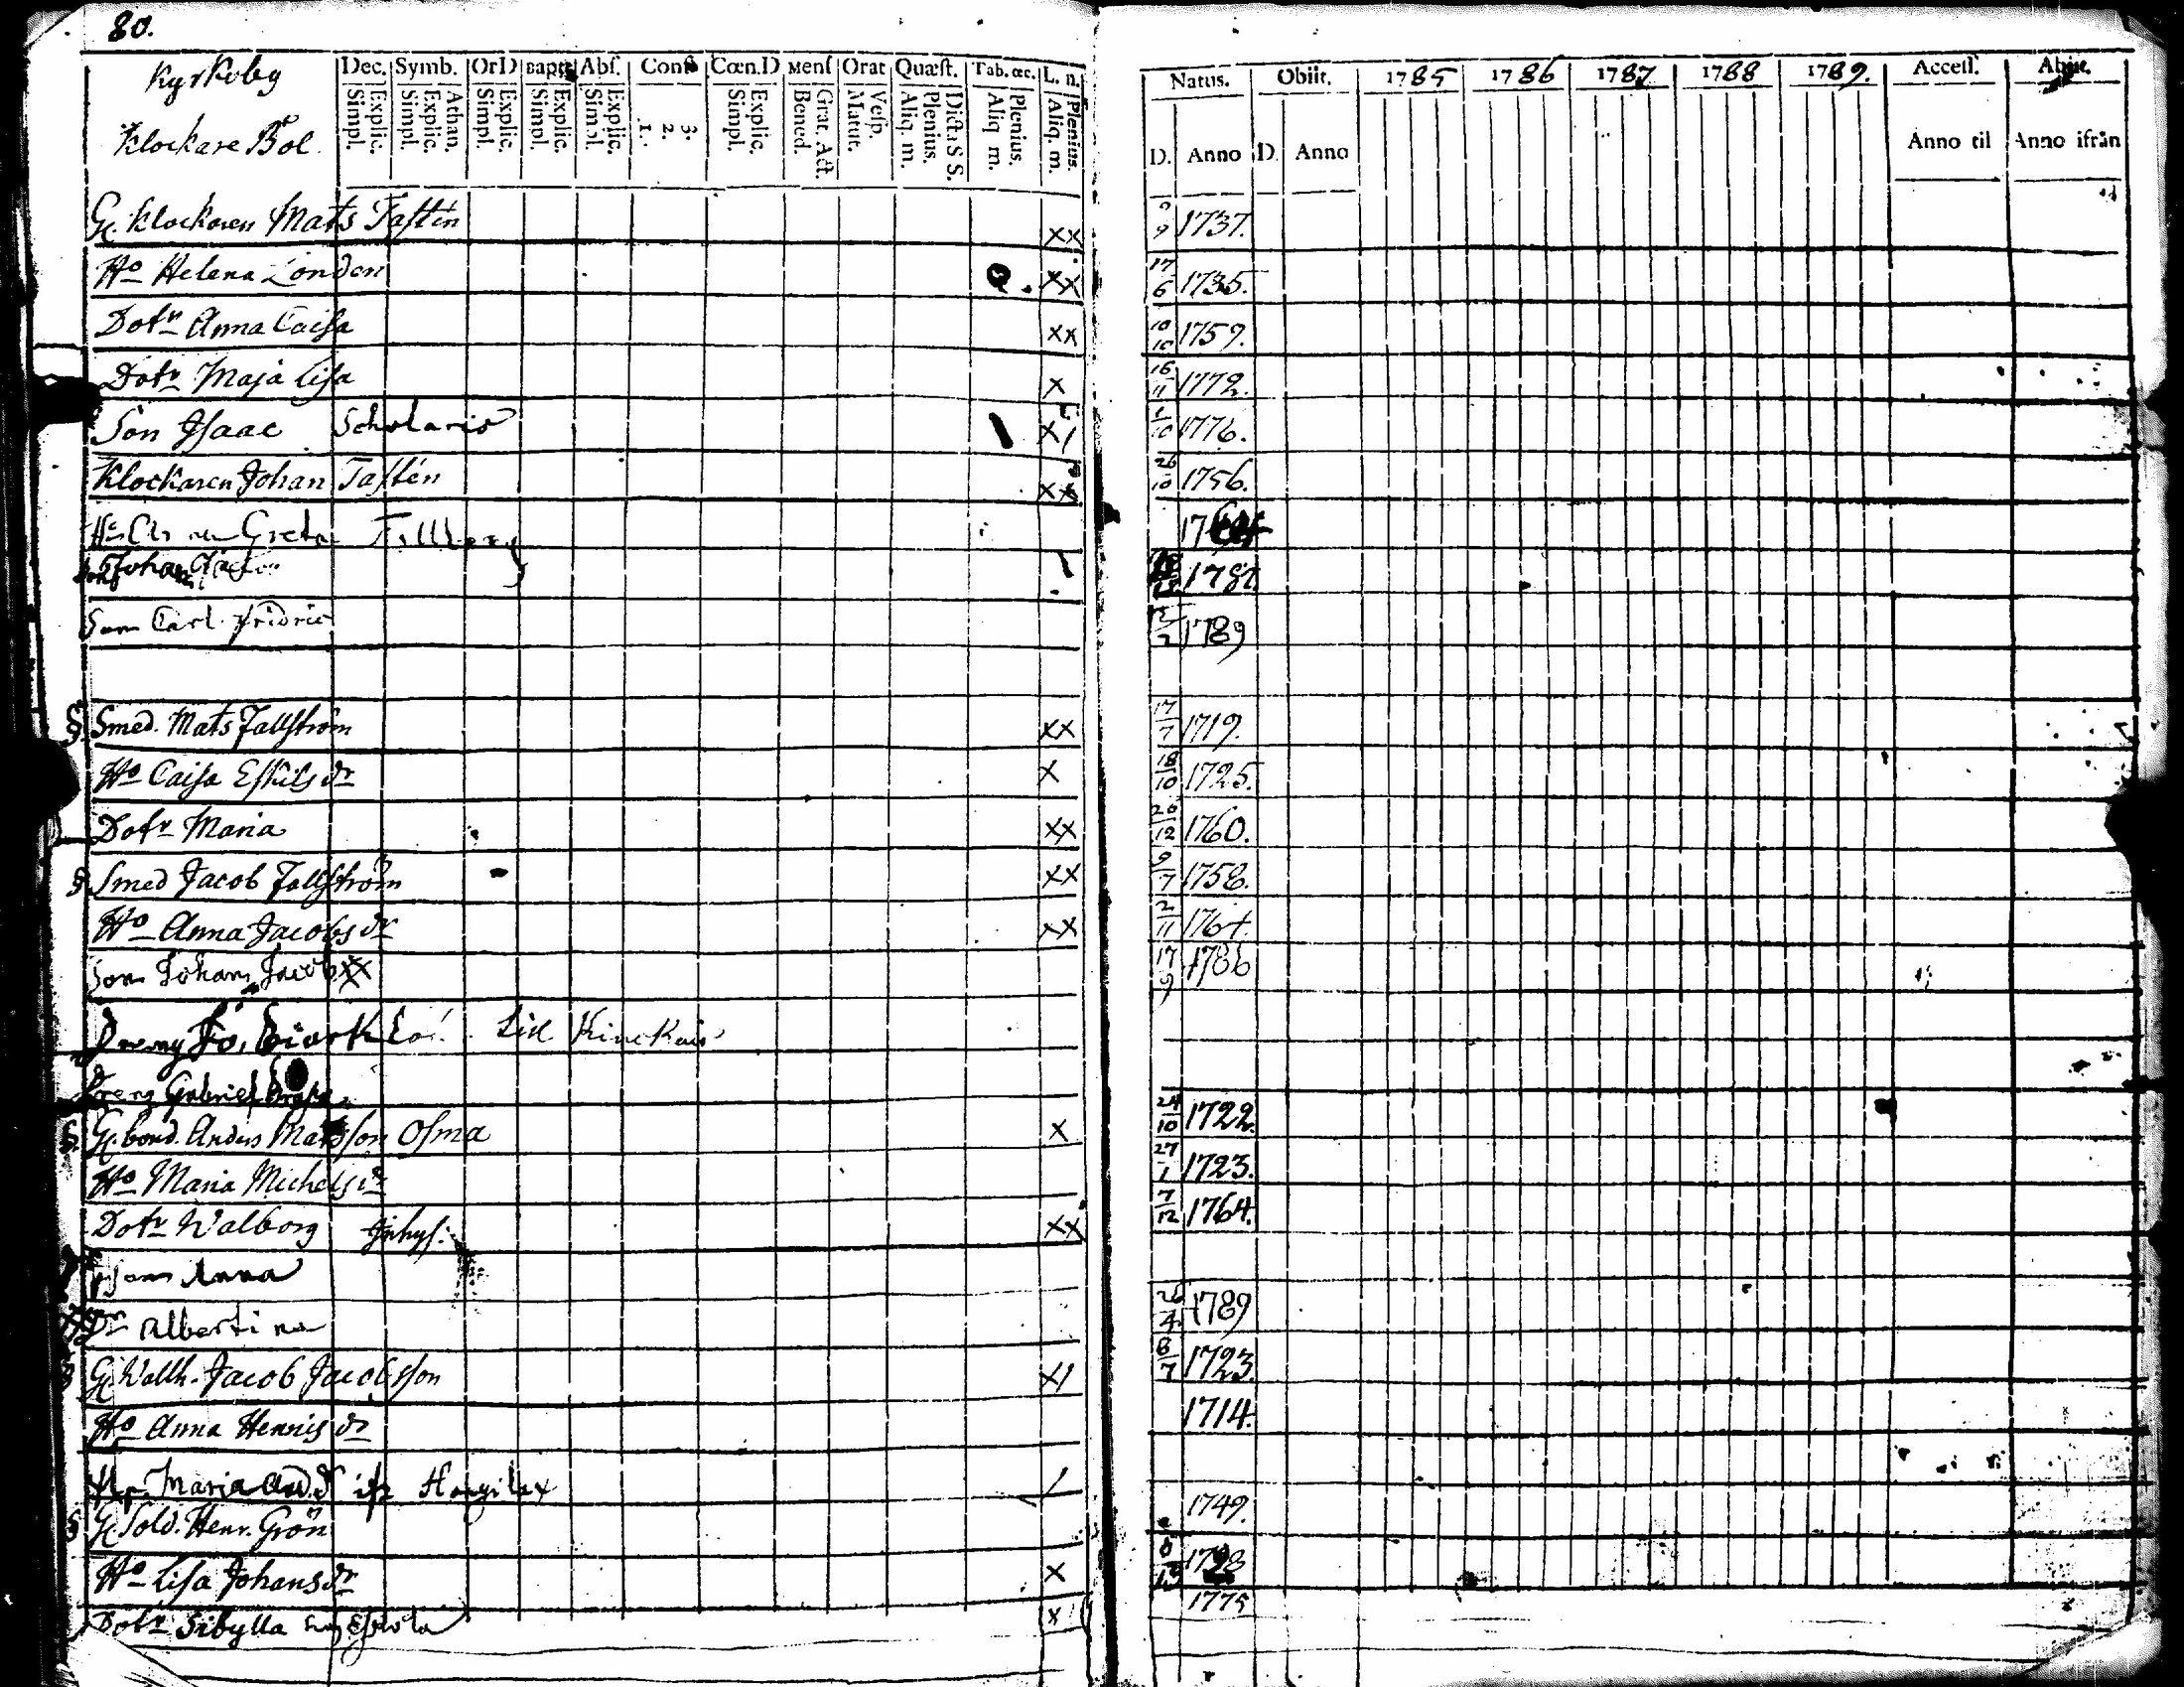 80.
Kyrkoby
Klockare Bol.
Dec. Symb. OrD Bapt. Abs. Conf. Cœn.D Mens Orat Quæst. Tab. œc. L. n.
Explic. Simpl. Athan. Explic. Simpl. Explic. Simpl. Explic. Simpl. Explic. Simpl. 3. 2. 1. Explic. Simpl. Grat. Act. Bened. Vesp. Matut. Dicta S S. Plenius. Aliq. m. Plenius. Aliq m. Plenius. Aliq. m.
Natus. Obiit. 1785 1786 1787 1788 1789. Access. Abiit.
D. Anno D. Anno Anno til Anno ifrån
G. Klockaren Mats Tasten xx 9 1737.
Ho Helena London xx 17/6 1735.
Dotr Anna Caisa xx 10/10 1759.
Dotr Maja Lisa x 16/11 1772.
Son Isaac Scholaris x/ 1/10 1776.
Klockaren Johan Tastén xx 26/10 1756.
Greta 17
Johan 1787
Son Carl Fridric 1789
§ Smed. Mats Fallström xx 17/7 1719.
Ho Caisa Eskils dr x 18/10 1725.
Dotr Maria xx 20/12 1760.
§ Smed Jacob Fallström xx 9/7 1758.
Ho Anna Jacobs dr xx 2/11 1764.
Son Johan Jacob xx 17/9 1786
Gabriel
§ G. bond. Anders Matsson Osma x 24/10 1722.
Ho Maria Michels dr 27/1 1723.
Dotr Walborg Inhys: xx 7/12 1764.
Anna
Dr Albertina 26/4 1789
§ G. Wallh. Jacob Jacobsson x/ 6/7 1723.
Ho Anna Henrics dr 1714.
Maria And.dr /
§ G. Sold. Henr. Grön 1749.
Ho Lisa Johans dr x 1728
Dotr Sibylla x 1775